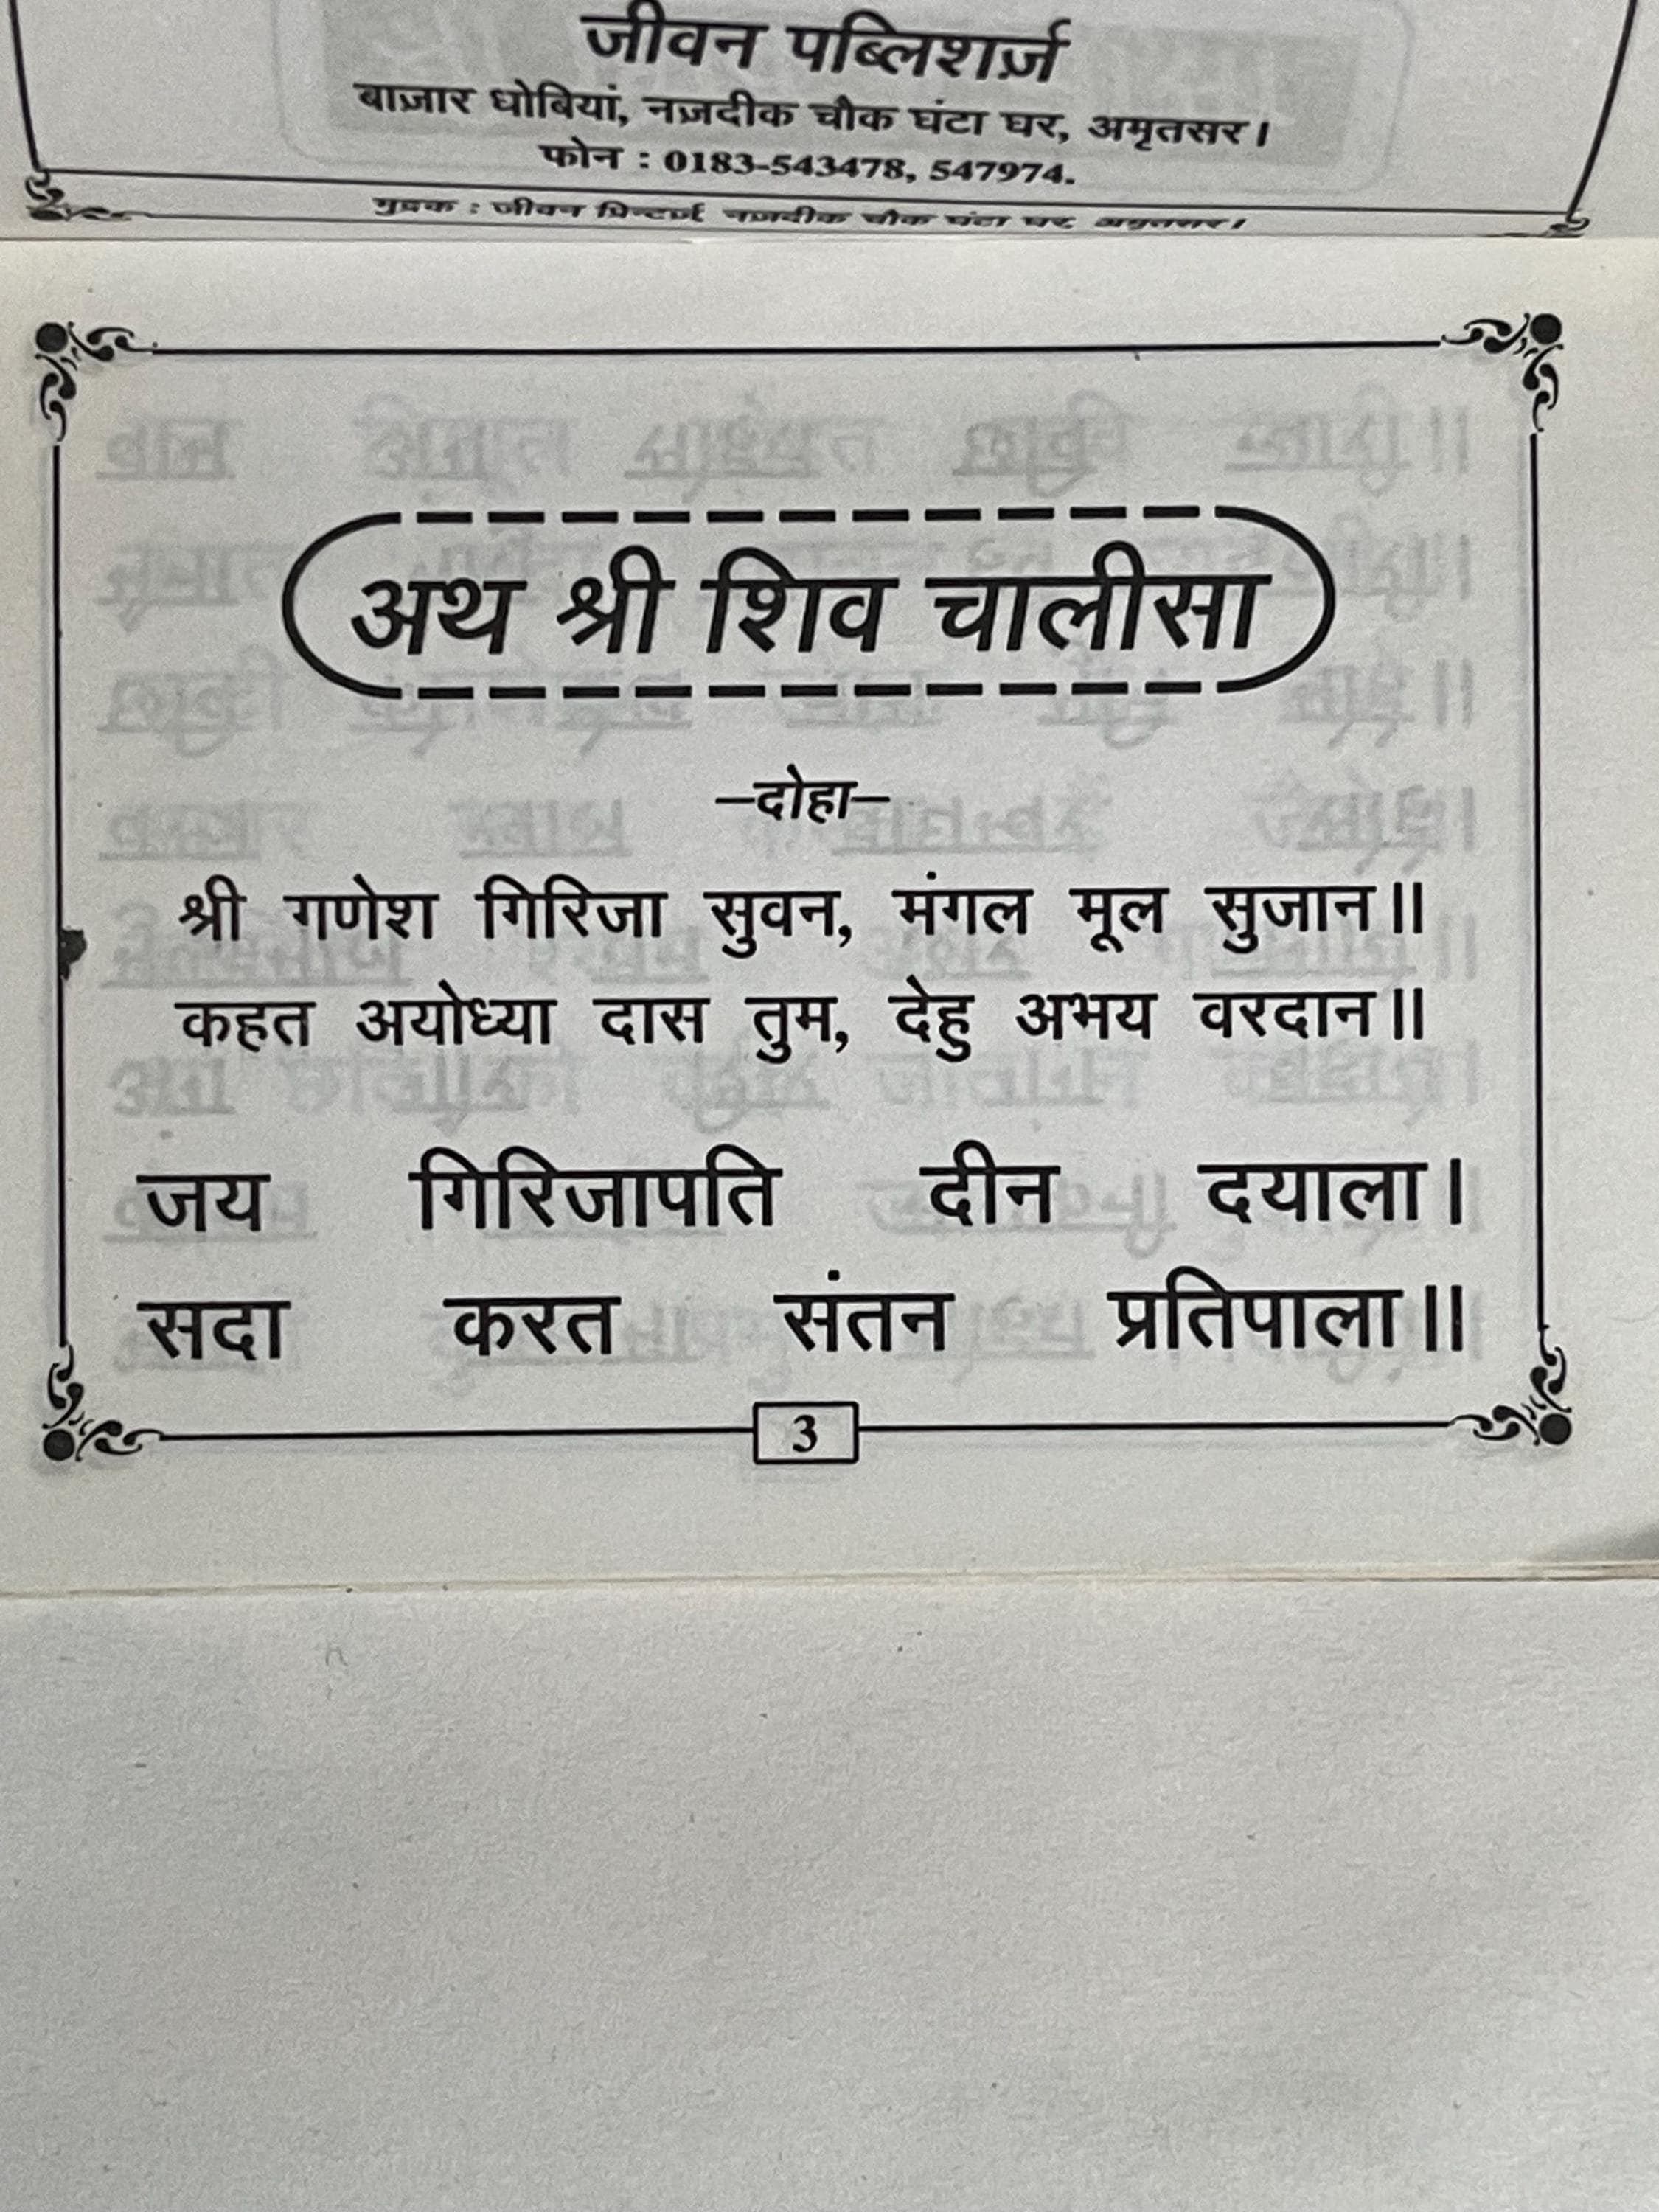 जीवन पब्लिशर्ज़
बाज़ार धोबियां, नज़दीक चौक घंटा घर, अमृतसर।
फोन : 0183-543478, 547974.
मुद्रक : जीवन प्रिन्टर्ज़ नज़दीक चौक घंटा घर, अमृतसर।
अथ श्री शिव चालीसा
–दोहा–
श्री गणेश गिरिजा सुवन, मंगल मूल सुजान॥
कहत अयोध्या दास तुम, देहु अभय वरदान॥
जय गिरिजापति दीन दयाला।
सदा करत संतन प्रतिपाला॥
3